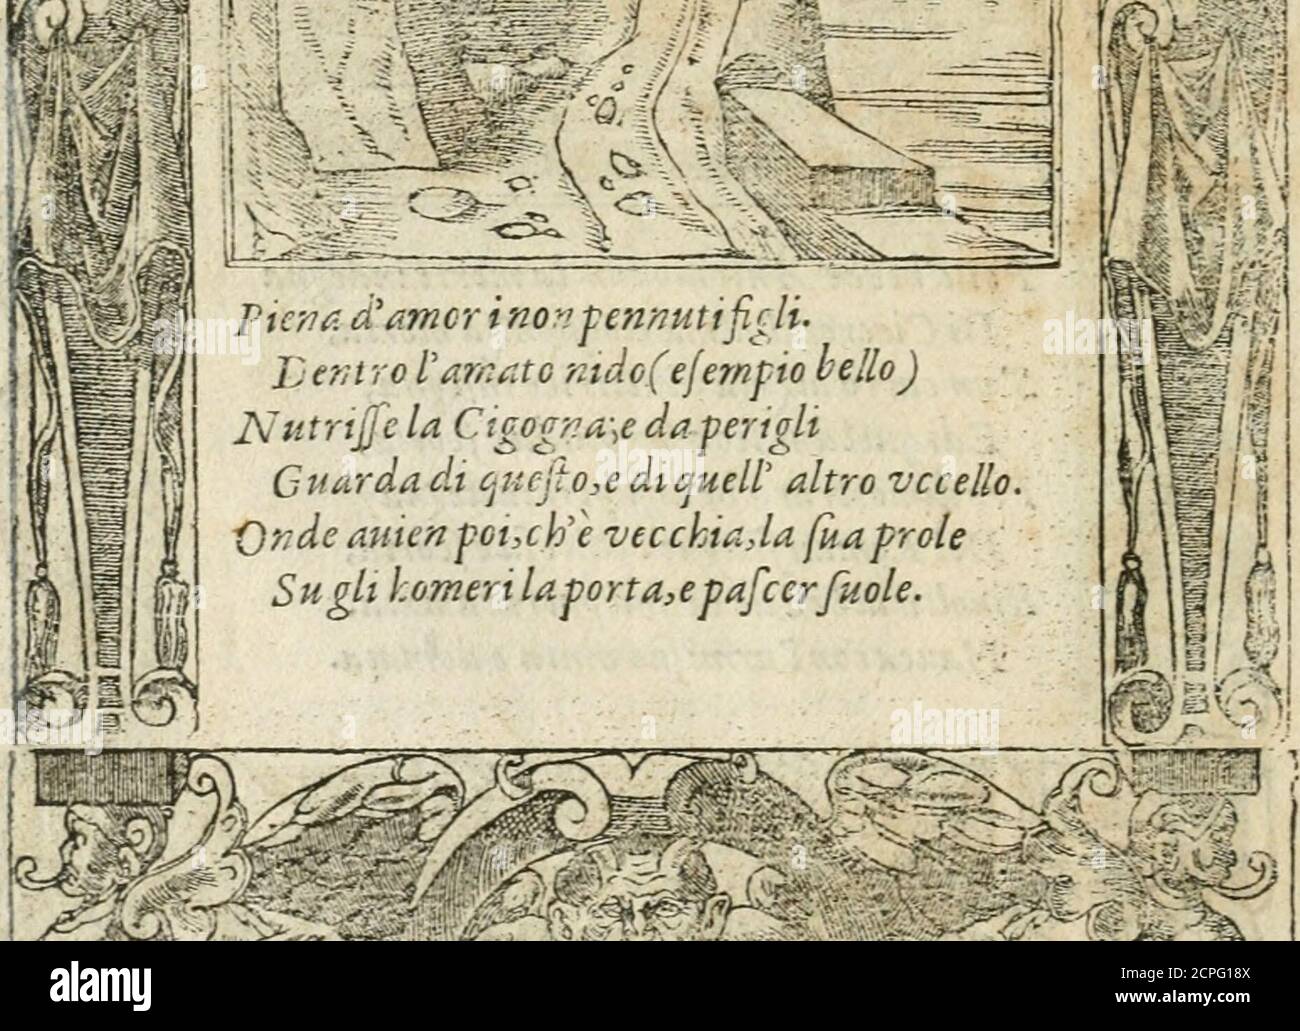 Piena d'amor i non pennuti figli.
Dentro l'amato nido (eſempio bello)
Nutriſſe la Cigogna; e da perigli
Guarda di queſto, e di quell' altro vccello.
Onde auien poi, ch'è vecchia, la ſua prole
Su gli homeri la porta, e paſcer ſuole.
alamy
Image ID: 2CPG18X
www.alamy.com